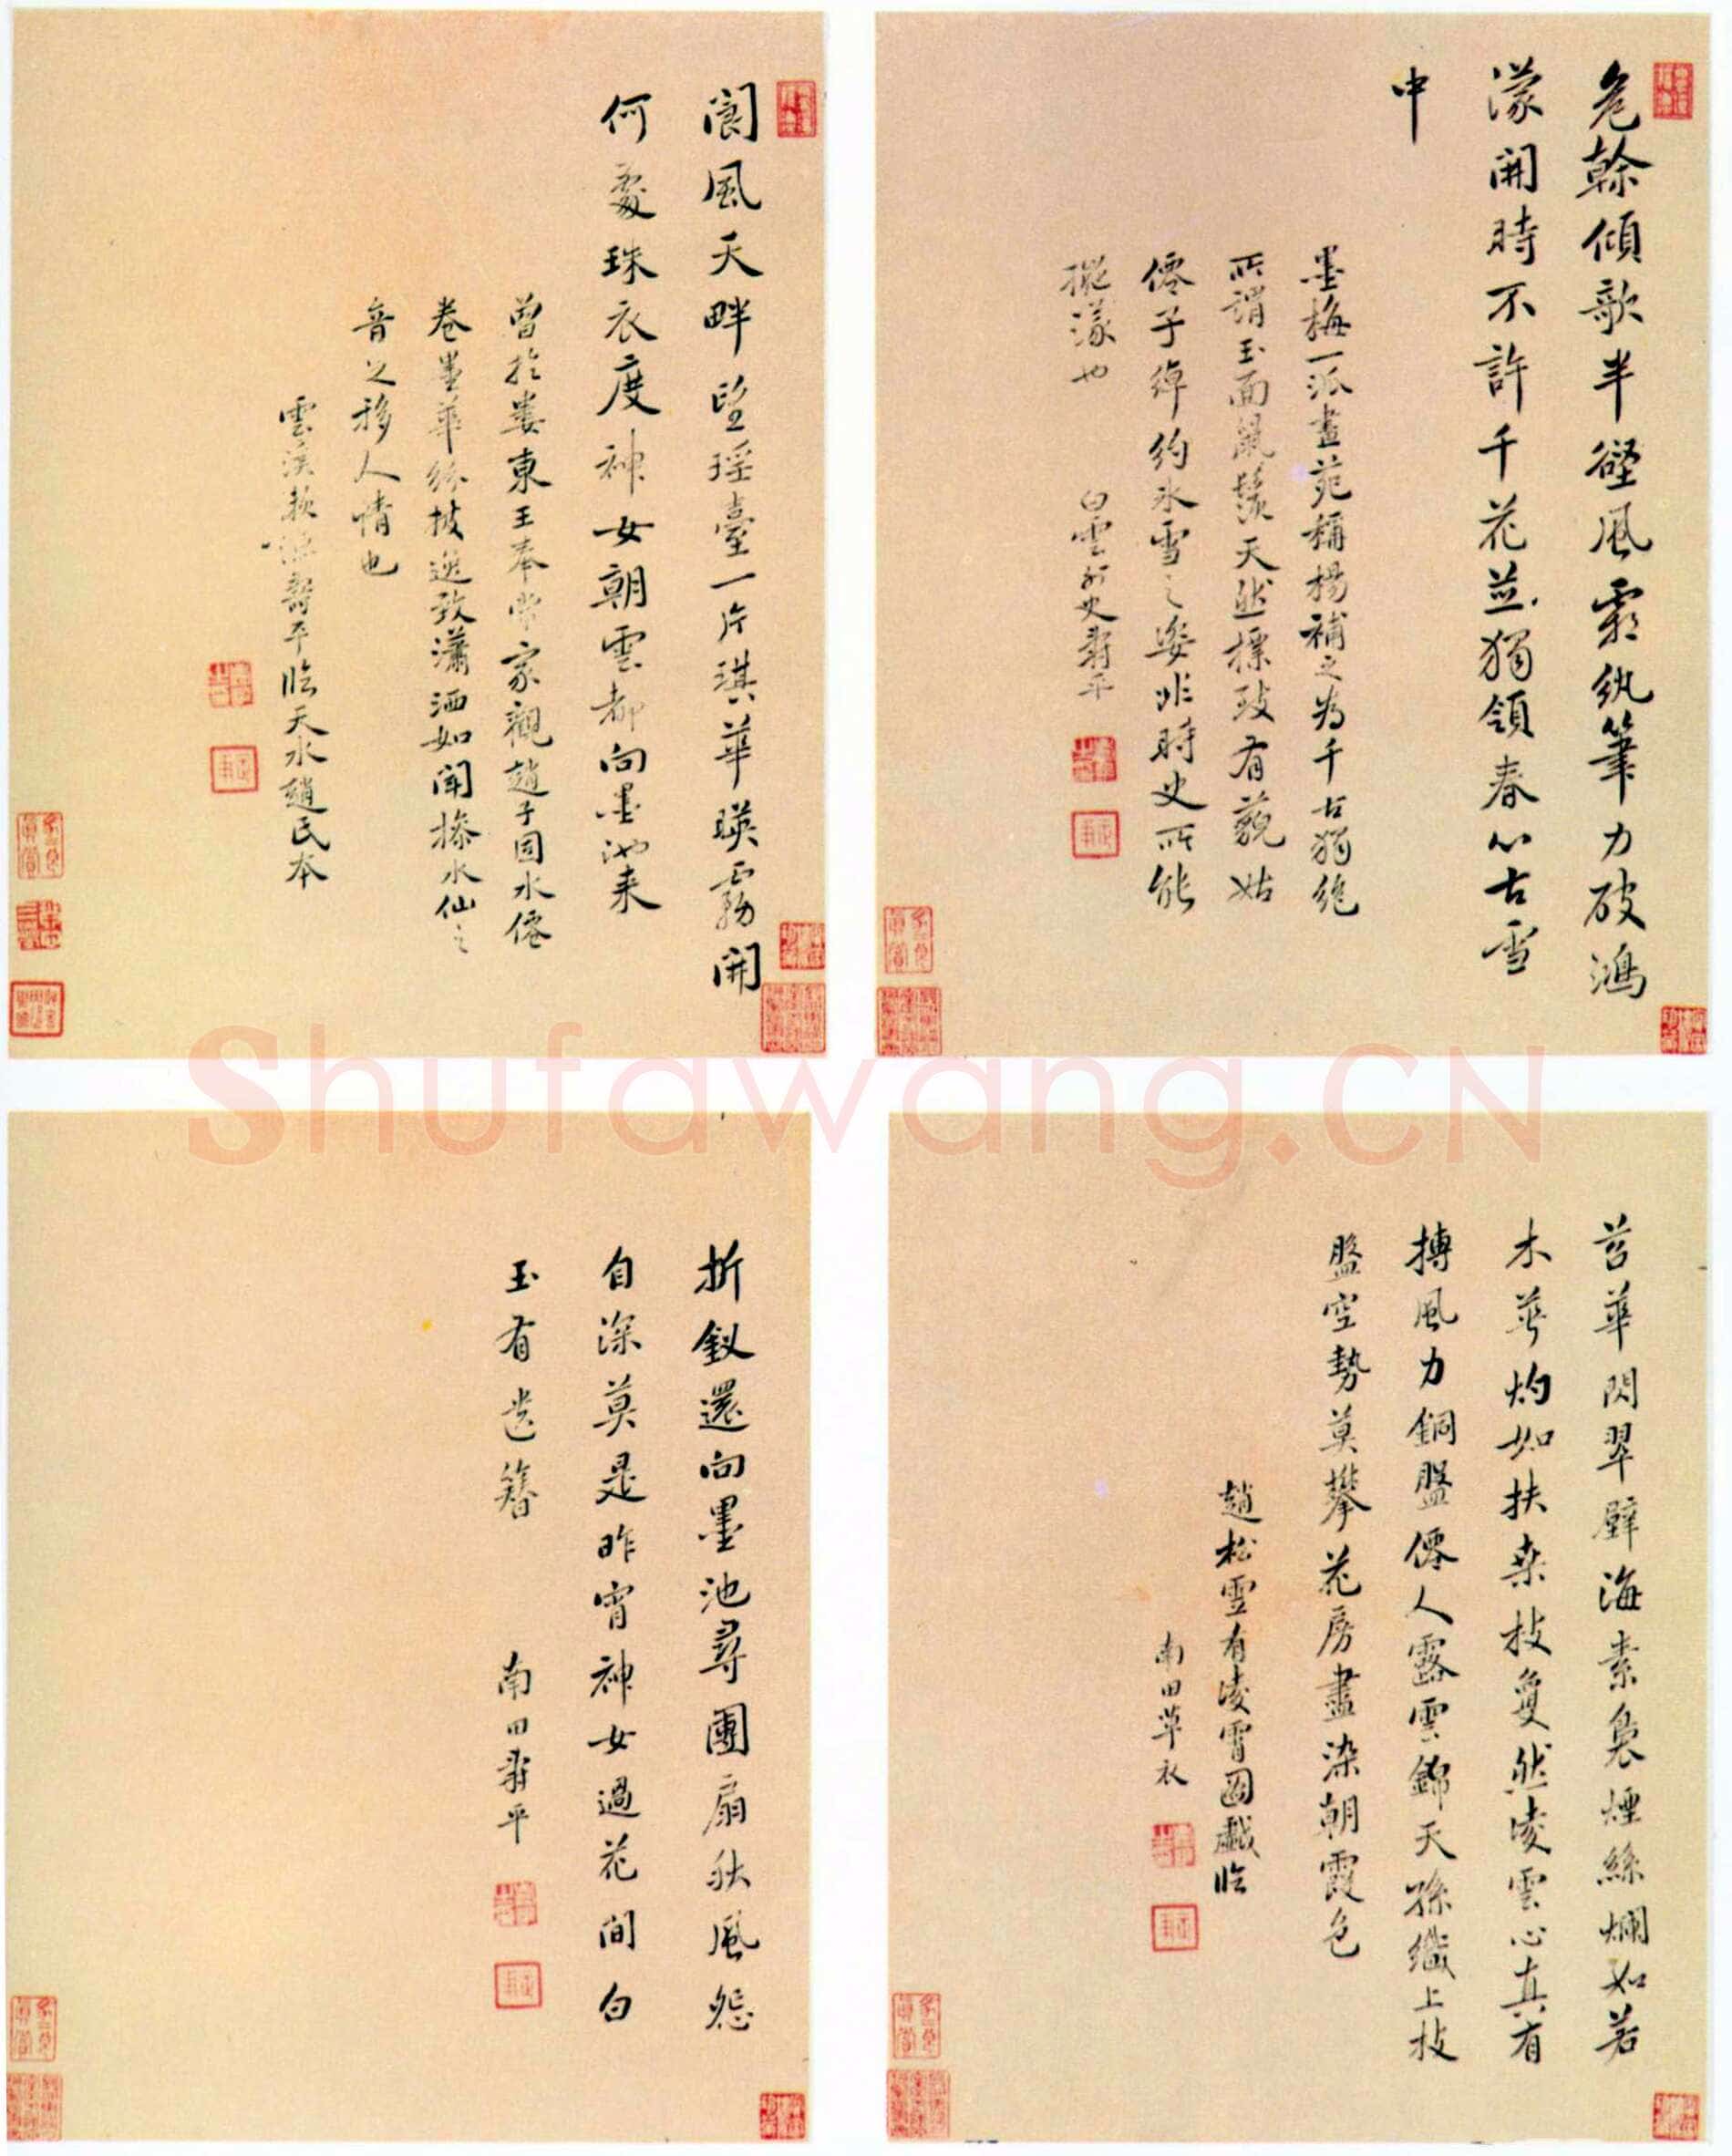 危榦傾歌半壁風霜紈筆力破鴻
濛開時不許千花並獨領春心古雪
中
墨梅一派畫苑稱楊補之為千古獨絶
所謂玉面鼠鬚天然標致有藐姑
僊子綽約冰雪之姿非時史所能
擬議也
白雲外史壽平
閬風天畔望瑤臺一片琪華暎霧開
何處珠衣度神女朝雲都向墨池来
曽於婁東王奉常家觀趙子固水僊
卷墨華紛披逸致瀟洒如聞捺水仙之
音之移人情也
雲溪 壽平臨天水趙氏本
苕華閃翠壁海素 煙絲爛如若
木華灼如扶桑枝夐然凌雲心真有
搏風力銅盤僊人露雲錦天孫織上枝
盤空勢莫攀花房盡染朝霞色
趙松雪有凌霄圖戲臨
南田草衣
折釵還向墨池尋團扇秋風怨
自深莫是昨宵神女過花間白
玉有遺簪
南田壽平
Shufawang.CN